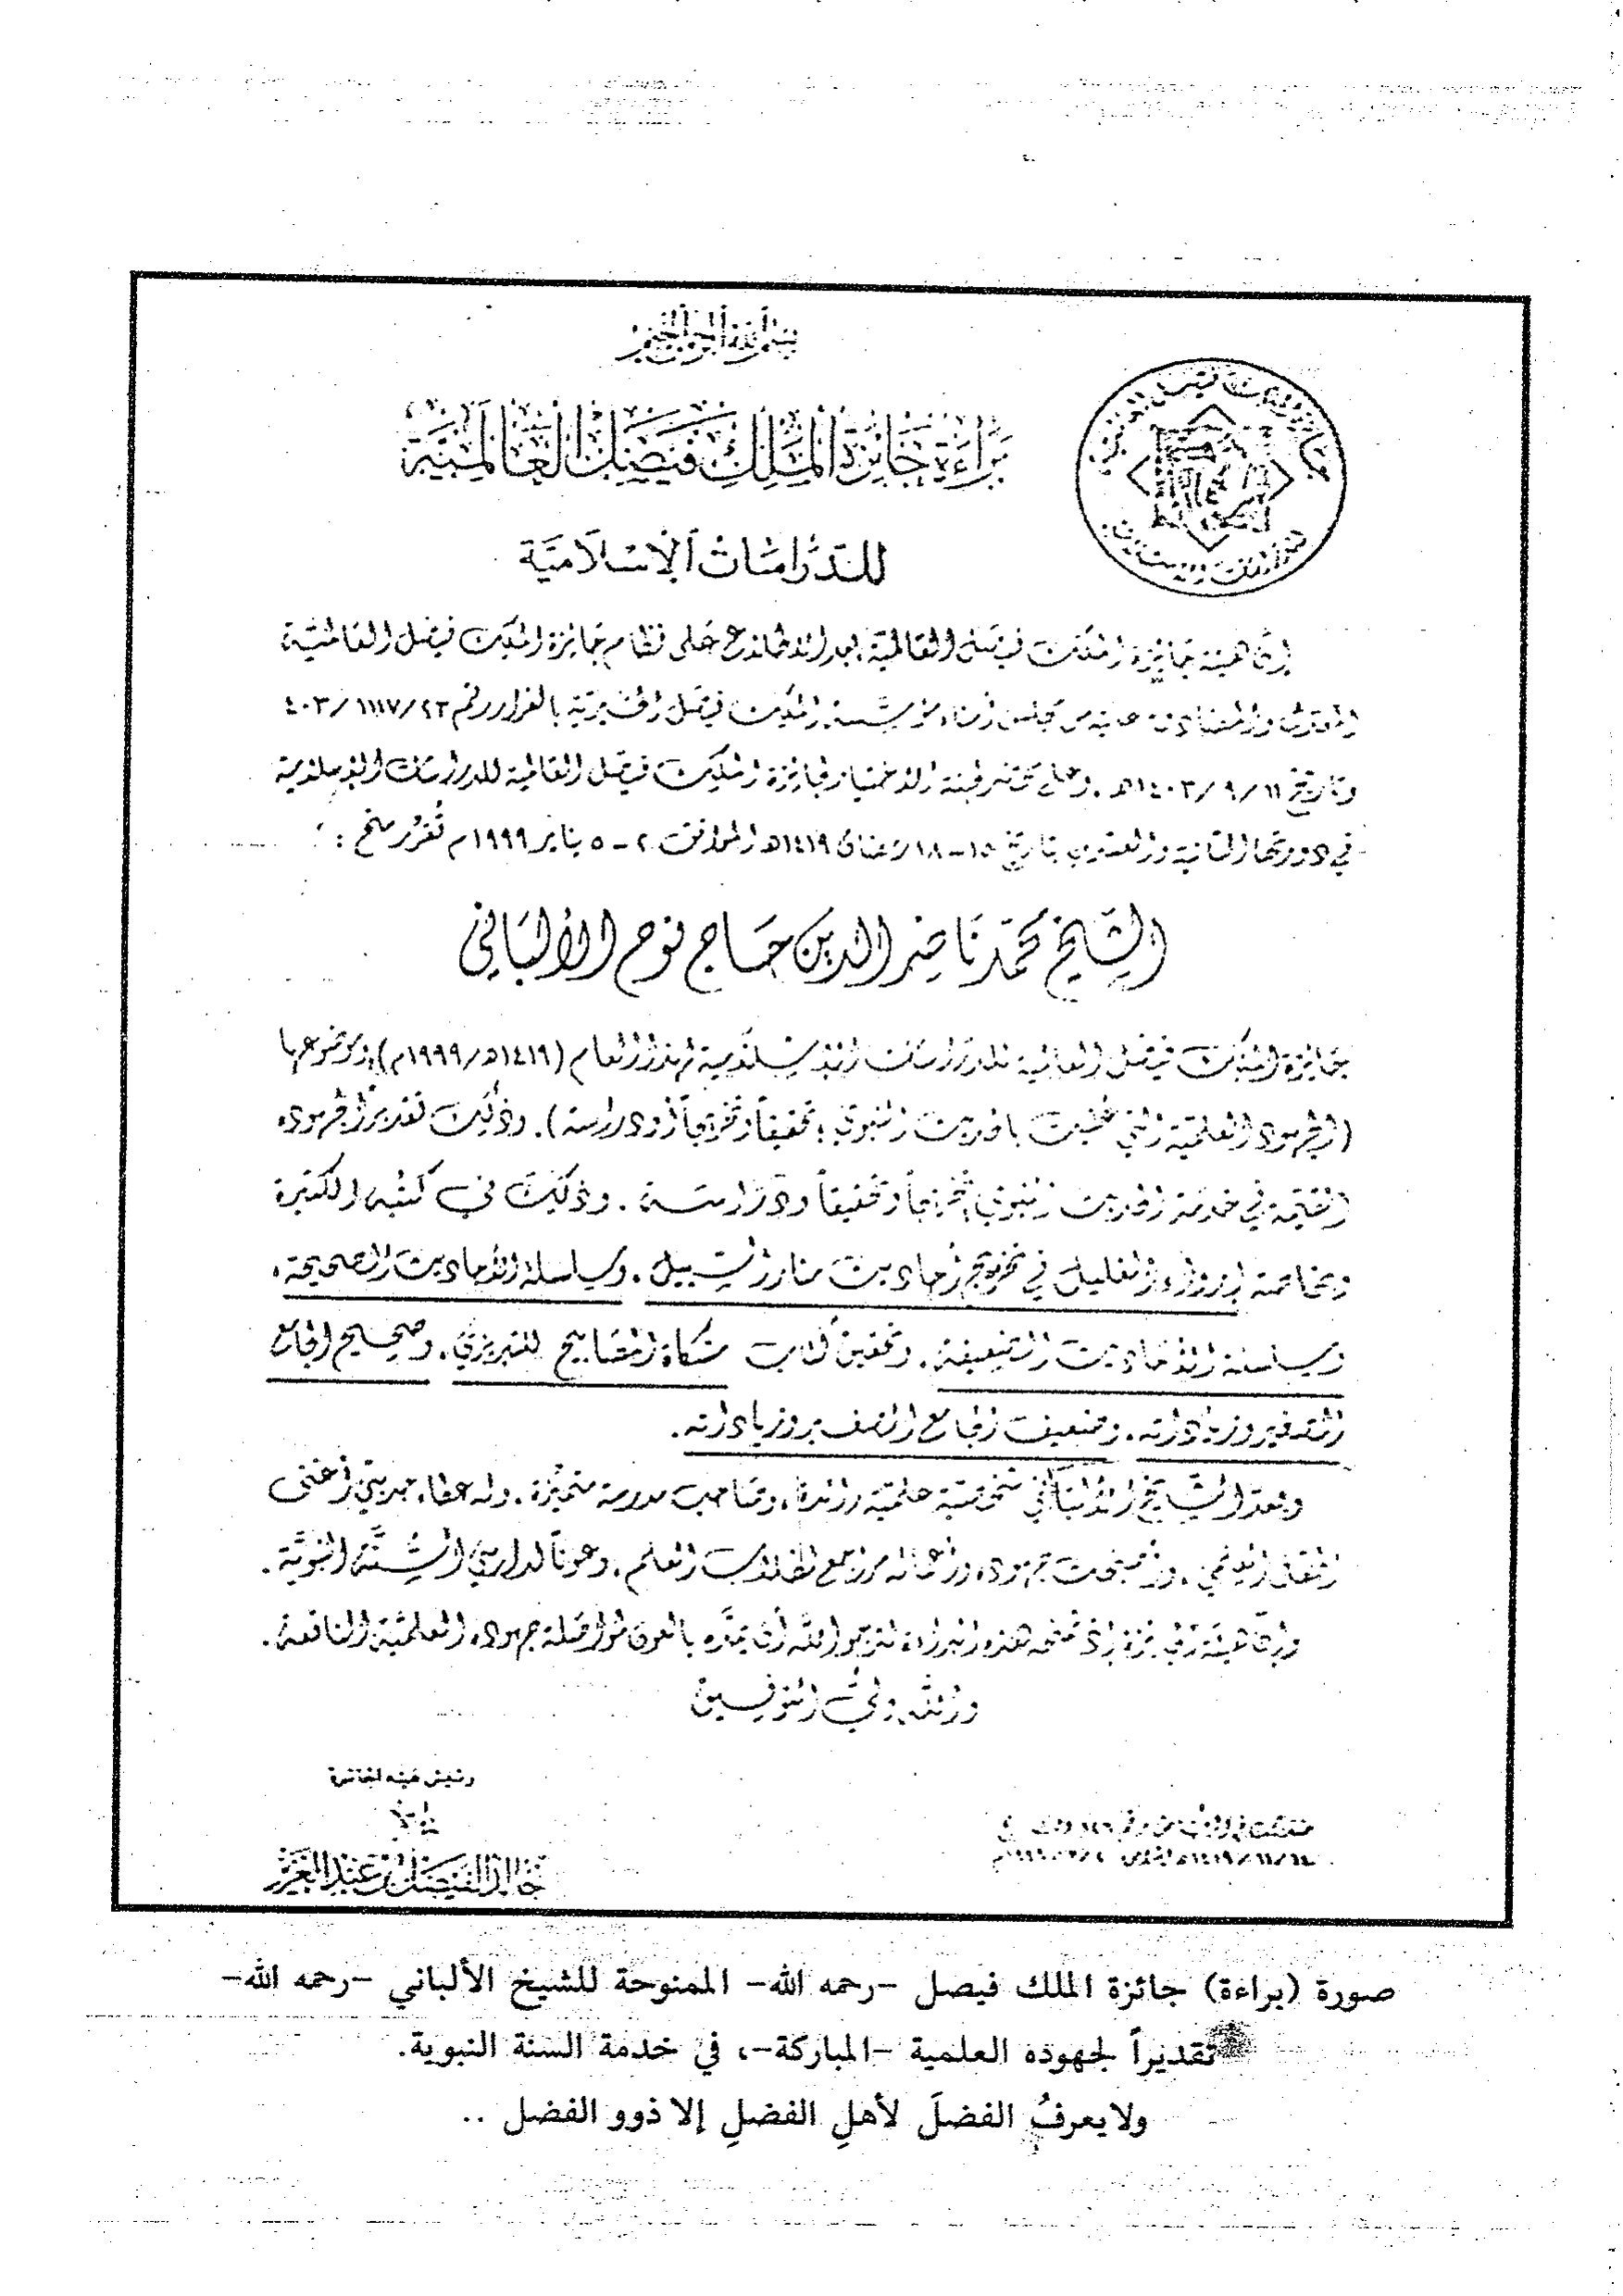 بسم الله الرحمن الرحيم
براءة جائزة الملك فيصل العالمية
للدراسات الإسلامية
إن هيئة جائزة الملك فيصل العالمية بعد الاطلاع على نظام جائزة الملك فيصل العالمية
من مجلس أمناء مؤسسة الملك فيصل الخيرية بالقرار رقم
وتاريخ ١١/٩/١٤٠٣هـ. وعلى محضر لجنة الاختيار لجائزة الملك فيصل العالمية للدراسات الإسلامية
في دورتها الثانية والعشرين بتاريخ ١٥-١٨ رمضان ١٤١٩هـ الموافق ٢-٥ يناير ١٩٩٩م تقرر منح :
الشيخ محمد ناصر الدين حاج نوح الألباني
بجائزة الملك فيصل العالمية للدراسات الإسلامية لهذا العام (١٤١٩هـ/١٩٩٩م)، وموضوعها
(الجهود العلمية التي عنيت بالحديث النبوي؛ تحقيقاً وتخريجاً أو دراسة). وذلك تقديراً لجهوده
القيمة في خدمة الحديث النبوي؛ تخريجاً وتحقيقاً ودراسة. وذلك في كتبه الكثيرة
وبخاصة إرواء الغليل في تخريج أحاديث منار السبيل، وسلسلة الأحاديث الصحيحة،
وسلسلة الأحاديث الضعيفة، وتحقيق كتاب مشكاة المصابيح للتبريزي، وصحيح الجامع
الصغير وزياداته، وضعيف الجامع الصغير وزياداته.
ويعد الشيخ الألباني شخصية علمية رائدة، وصاحب مدرسة متميزة، وله عطاء حديثي أغنى
العلمي، وأصبحت جهوده وأعماله مراجع لطلاب العلم، وعوناً لدارسي السُّنَّة النبوية.
وإن هيئة الجائزة إذ تمنحه هذه البراءة لترجو الله أن يمده بالعون لمواصلة جهوده العلمية النافعة.
والله ولي التوفيق
رئيس هيئة الجائزة
خالد الفيصل بن عبد العزيز
صورة (براءة) جائزة الملك فيصل -رحمه الله- الممنوحة للشيخ الألباني -رحمه الله-
تقديراً لجهوده العلمية -المباركة-، في خدمة السنة النبوية.
ولا يعرفُ الفضلَ لأهلِ الفضلِ إلا ذوو الفضل ..